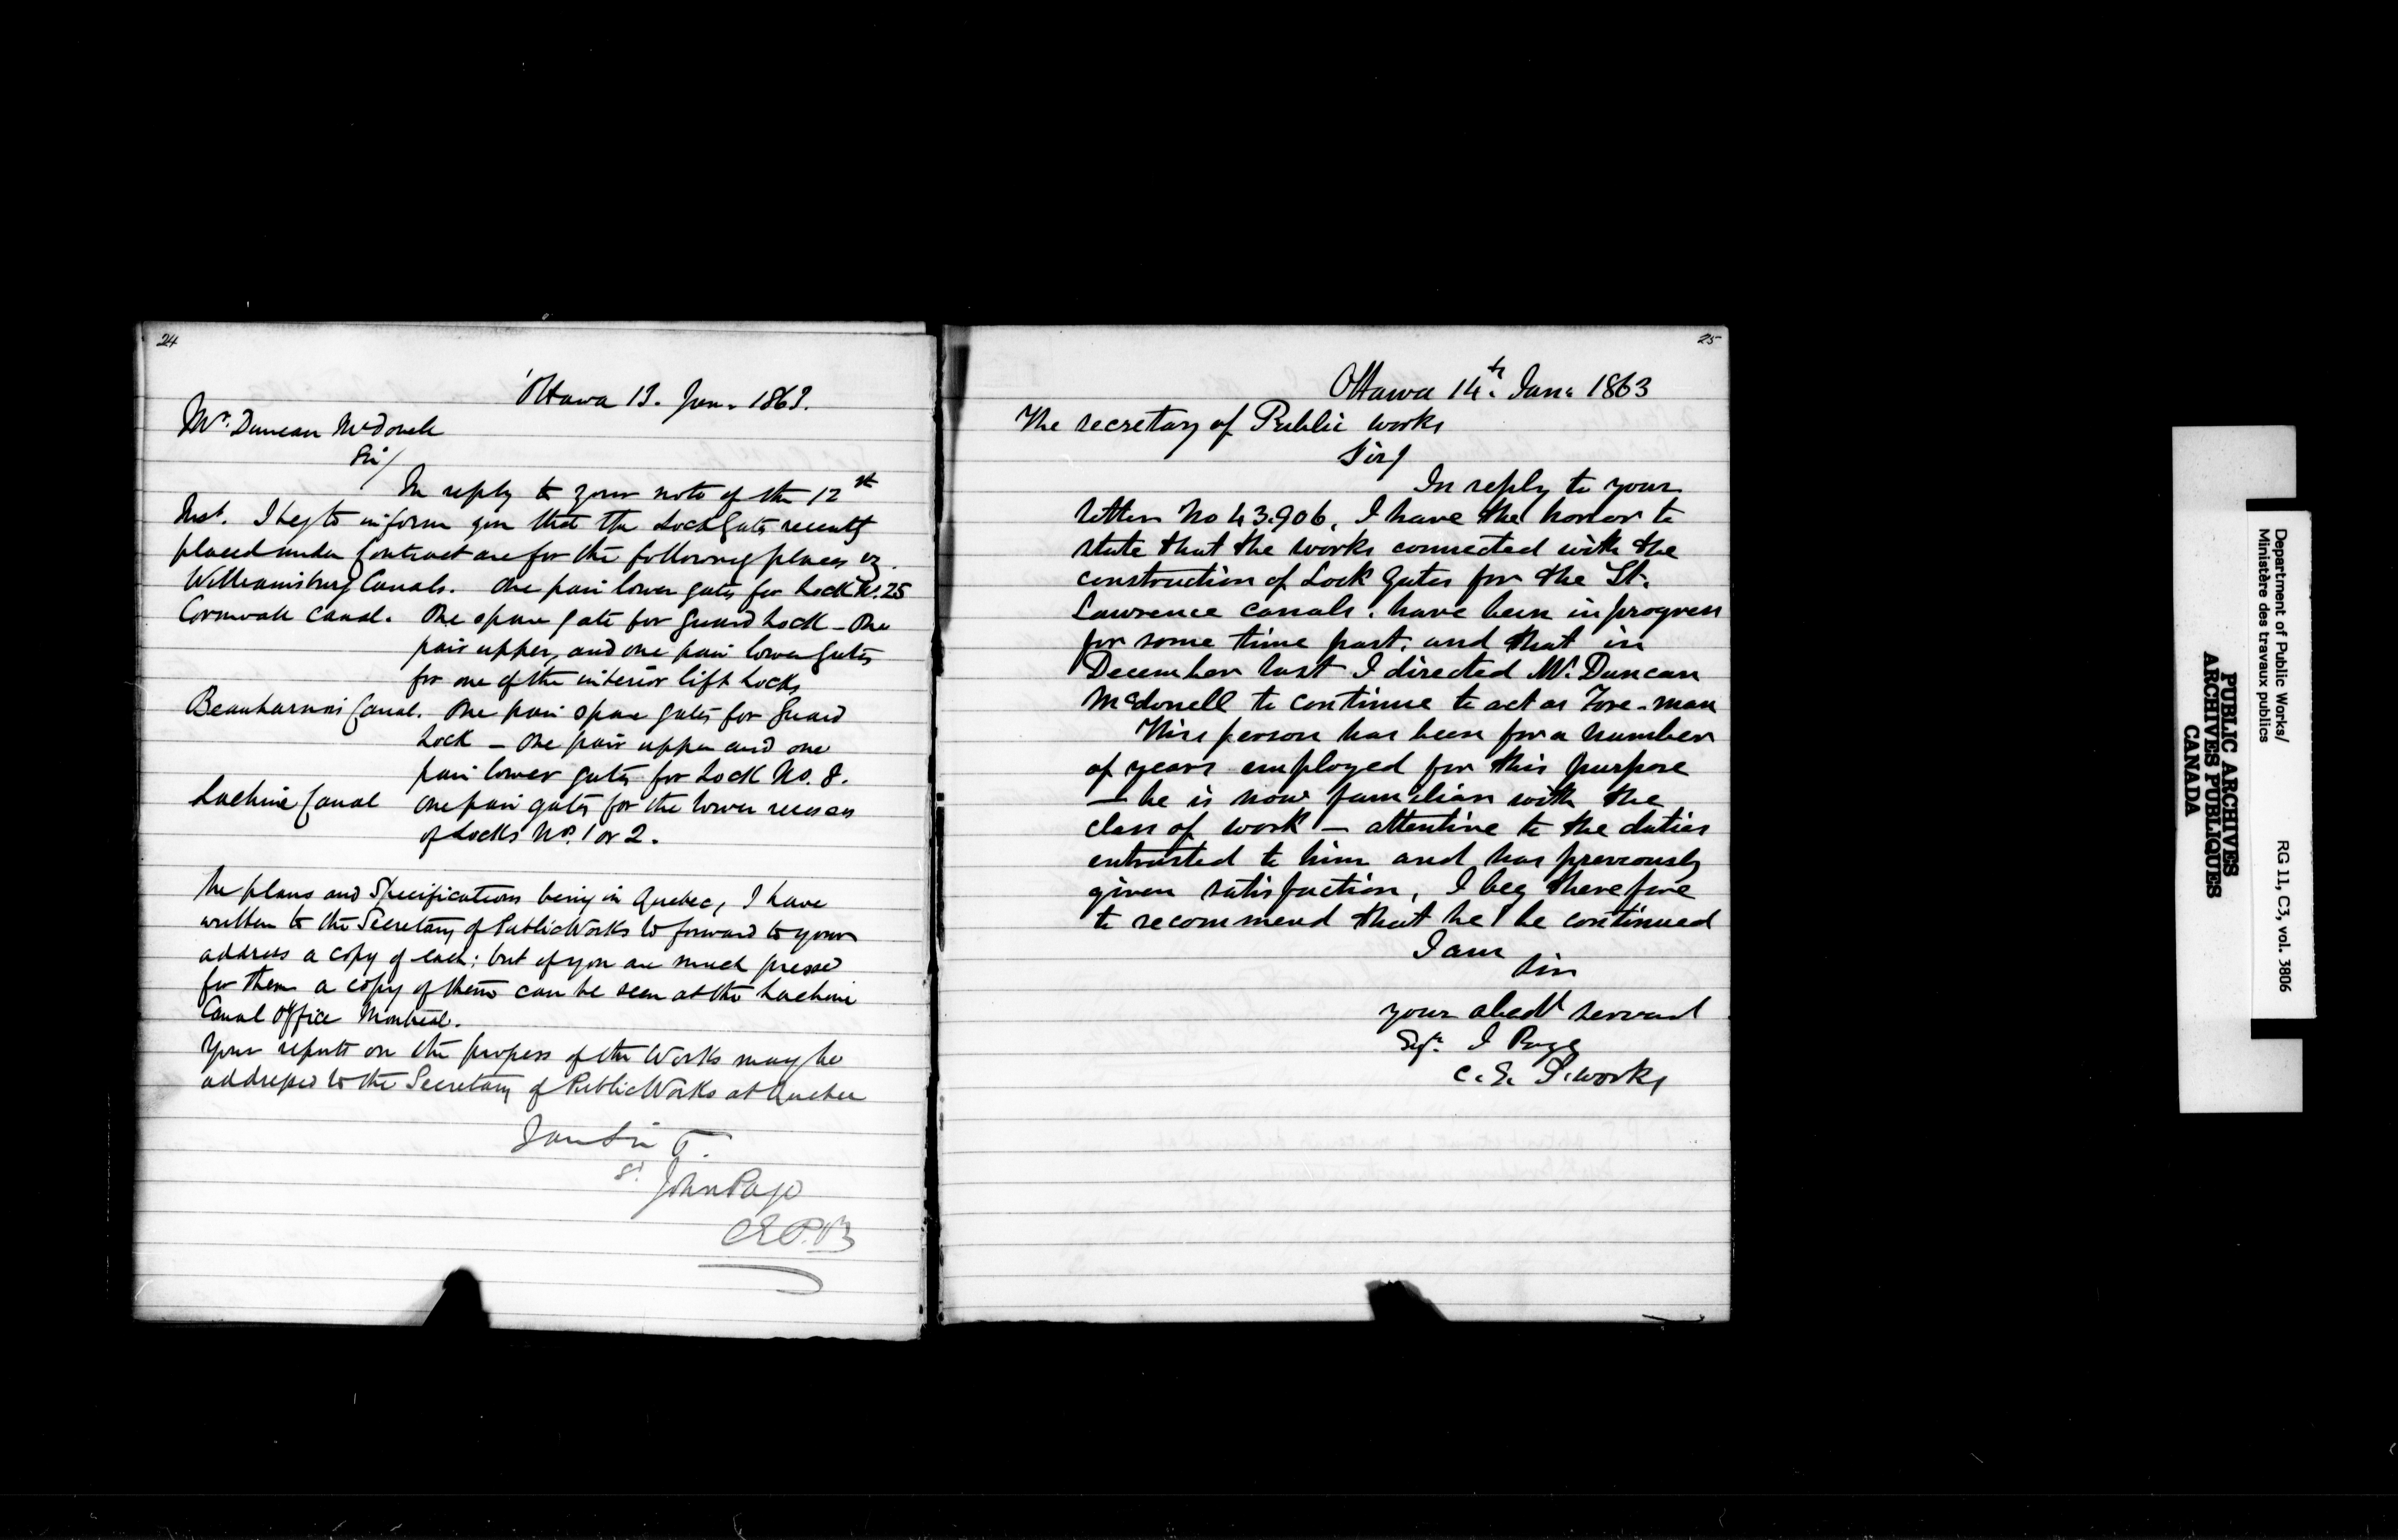 24
Ottawa 13. Jan. 1863.
Mr. Duncan McDonell
Sir/
In reply to your note of the 12th
Inst. I beg to inform you that the Lock Gates recently
placed under Contract are for the following places viz.
Williamsburg Canals. One pair lower gates for Lock No. 25
Cornwall Canal. One spare gate for Guard Lock - One
pair upper, and one pair lower Gates
for one of the interior lift Locks
Beauharnois Canal. One pair spare gates for Guard
Lock - One pair upper and one
pair lower gates for Lock No. 8.
Lachine Canal one pair gates for the lower recesses
of Locks No. 1 or 2.
The plans and Specifications being in Quebec, I have
written to the Secretary of Public Works to forward to your
address a copy of each; but if you are much pressed
for them a copy of them can be seen at the Lachine
Canal Office Montreal.
Your reports on the progress of the Works may be
addressed to the Secretary of Public Works at Quebec
I am Sir
Sd. John Page
C E P. W
25
Ottawa 14th. Jan. 1863
The secretary of Public works
Sir/
In reply to your
letter No 43.906, I have the honor to
state that the works connected with the
construction of Lock Gates for the St.
Lawrence canals. have been in progress
for some time past. and that in
December last I directed Mr. Duncan
McDonell to continue to act as Fore-man
This person has been for a number
of years employed for this purpose
- he is now familiar with the
class of work - attentive to the duties
entrusted to him and has previously
given satisfaction, I beg therefore
to recommend that he be continued
I am
Sir
your obedt servant
Sigd. J Page
C. E. P. works
Department of Public Works/
Ministère des travaux publics
RG 11, C3, vol. 3806
PUBLIC ARCHIVES
ARCHIVES PUBLIQUES
CANADA